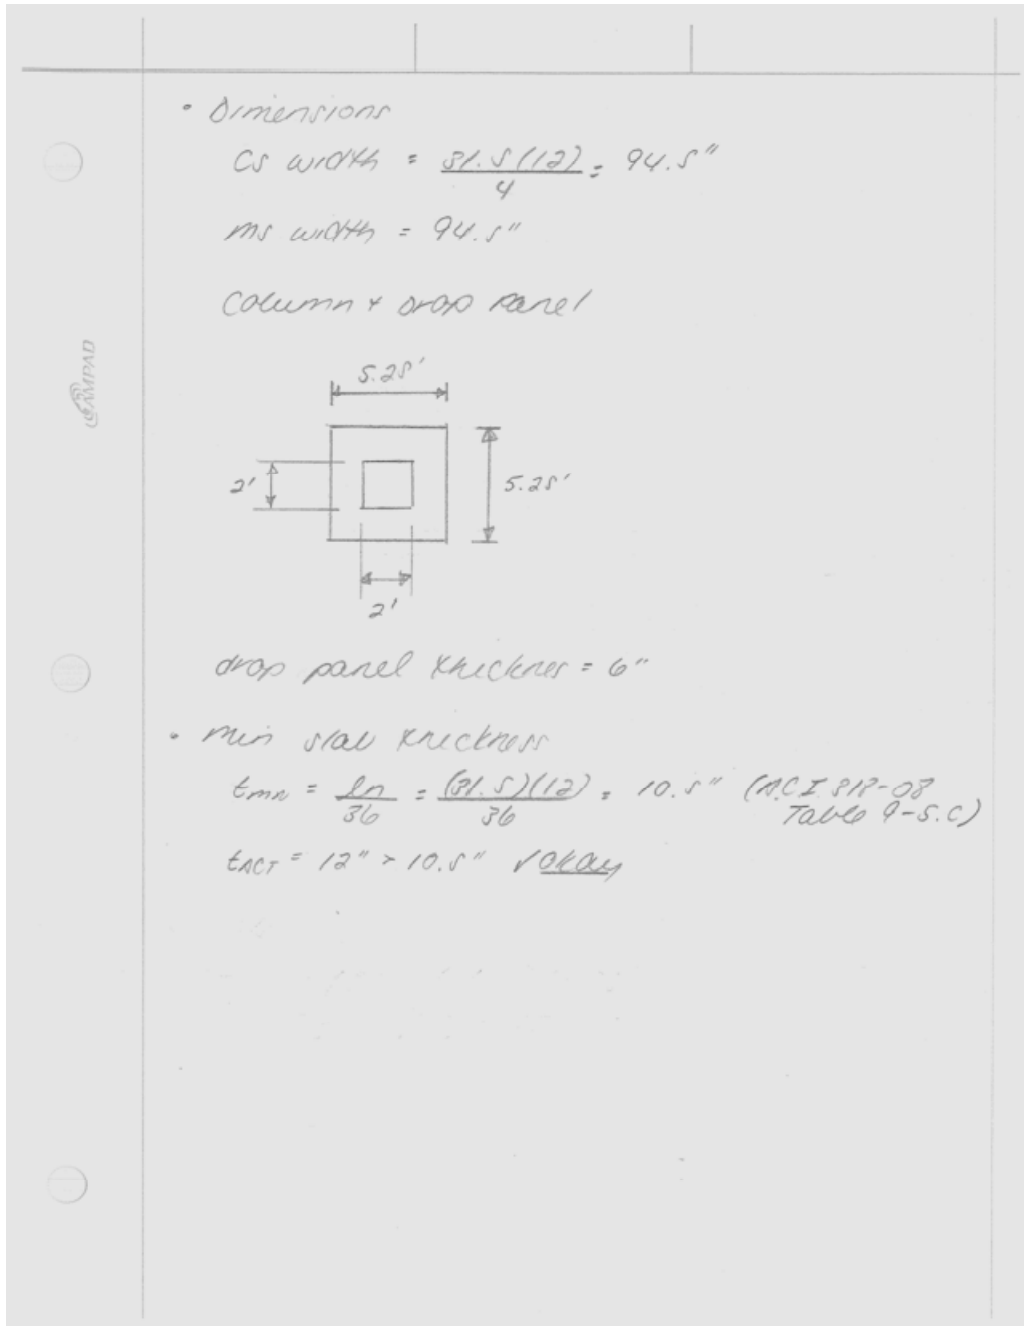 • Dimensions
CS width = 31.5(12)/4 = 94.5"
MS width = 94.5"
Column & drop panel
5.25'
2'
5.25'
2'
drop panel thicknes = 6"
• Min slab thickness
tmin = ln/36 = (31.5)(12)/36 = 10.5" (ACI 318-08
Table 9-5.C)
tACT = 12" > 10.5" √ okay
AMPAD